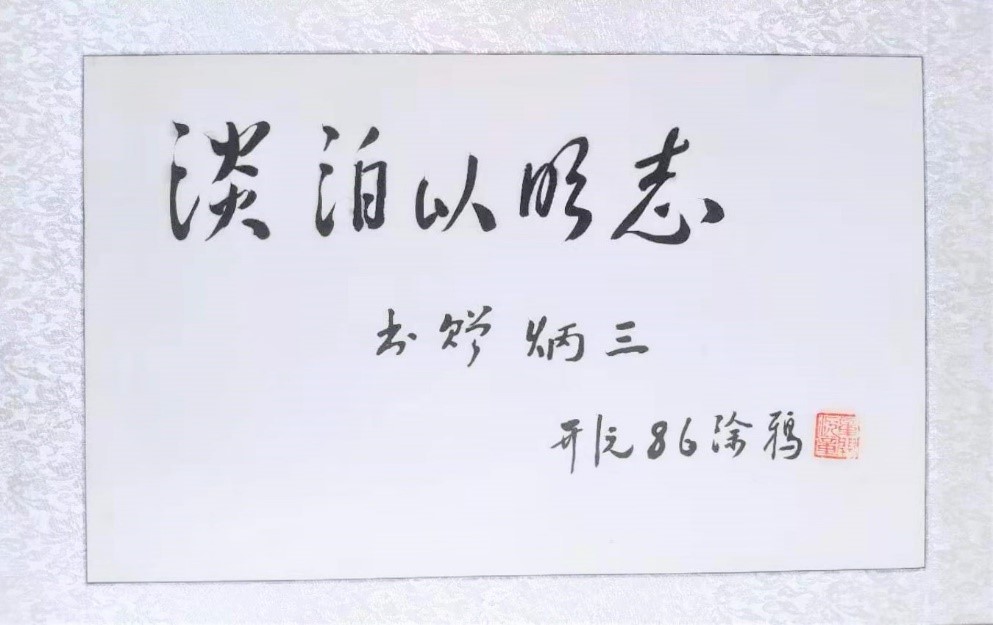 淡泊以明志
书赠炳三
开沅86涂鸦